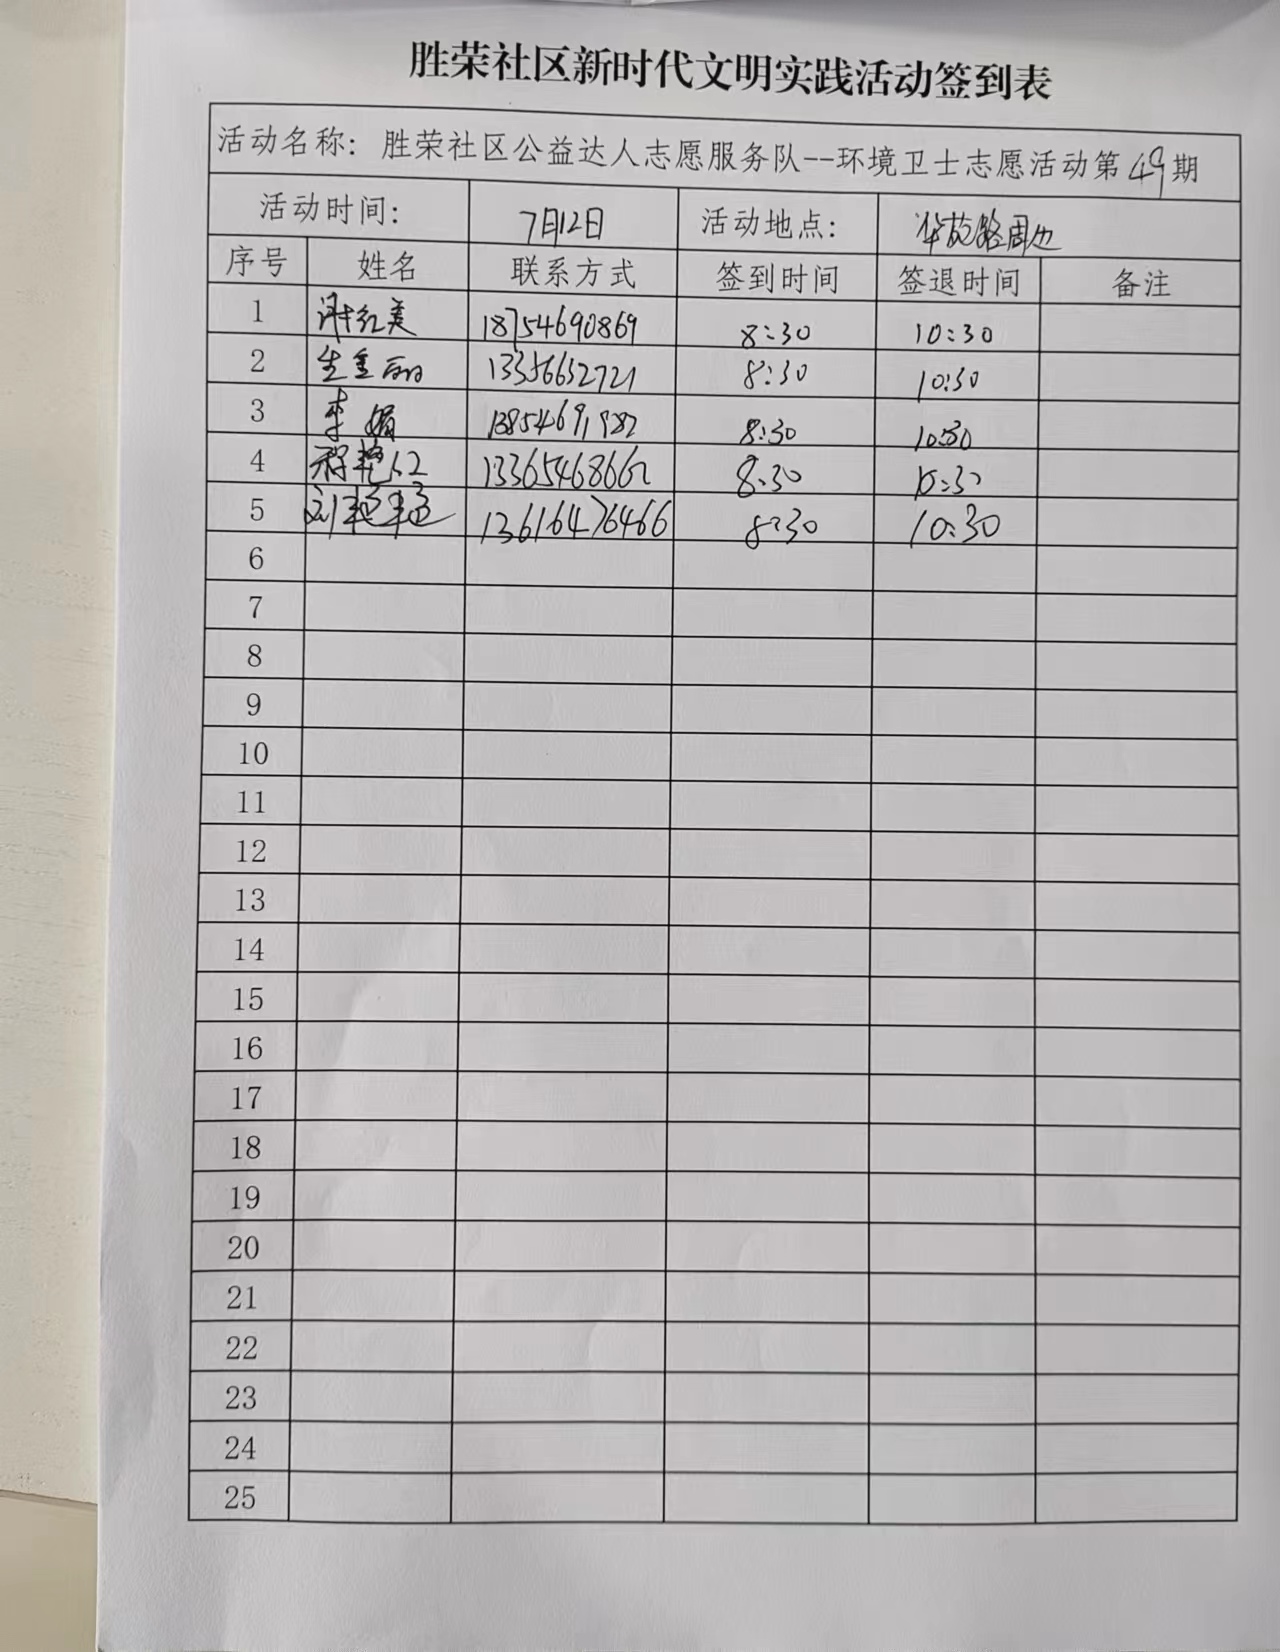 胜荣社区新时代文明实践活动签到表
活动名称：胜荣社区公益达人志愿服务队--环境卫士志愿活动第49期
活动时间： 7月12日 活动地点： 路周边
序号 姓名 联系方式 签到时间 签退时间 备注
1 红美 18754690869 8:30 10:30
2 13356652721 8:30 10:30
3 李娟 8:30 10:30
4 13365468662 8:30 10:30
5 刘 13616476466 8:30 10:30
6
7
8
9
10
11
12
13
14
15
16
17
18
19
20
21
22
23
24
25